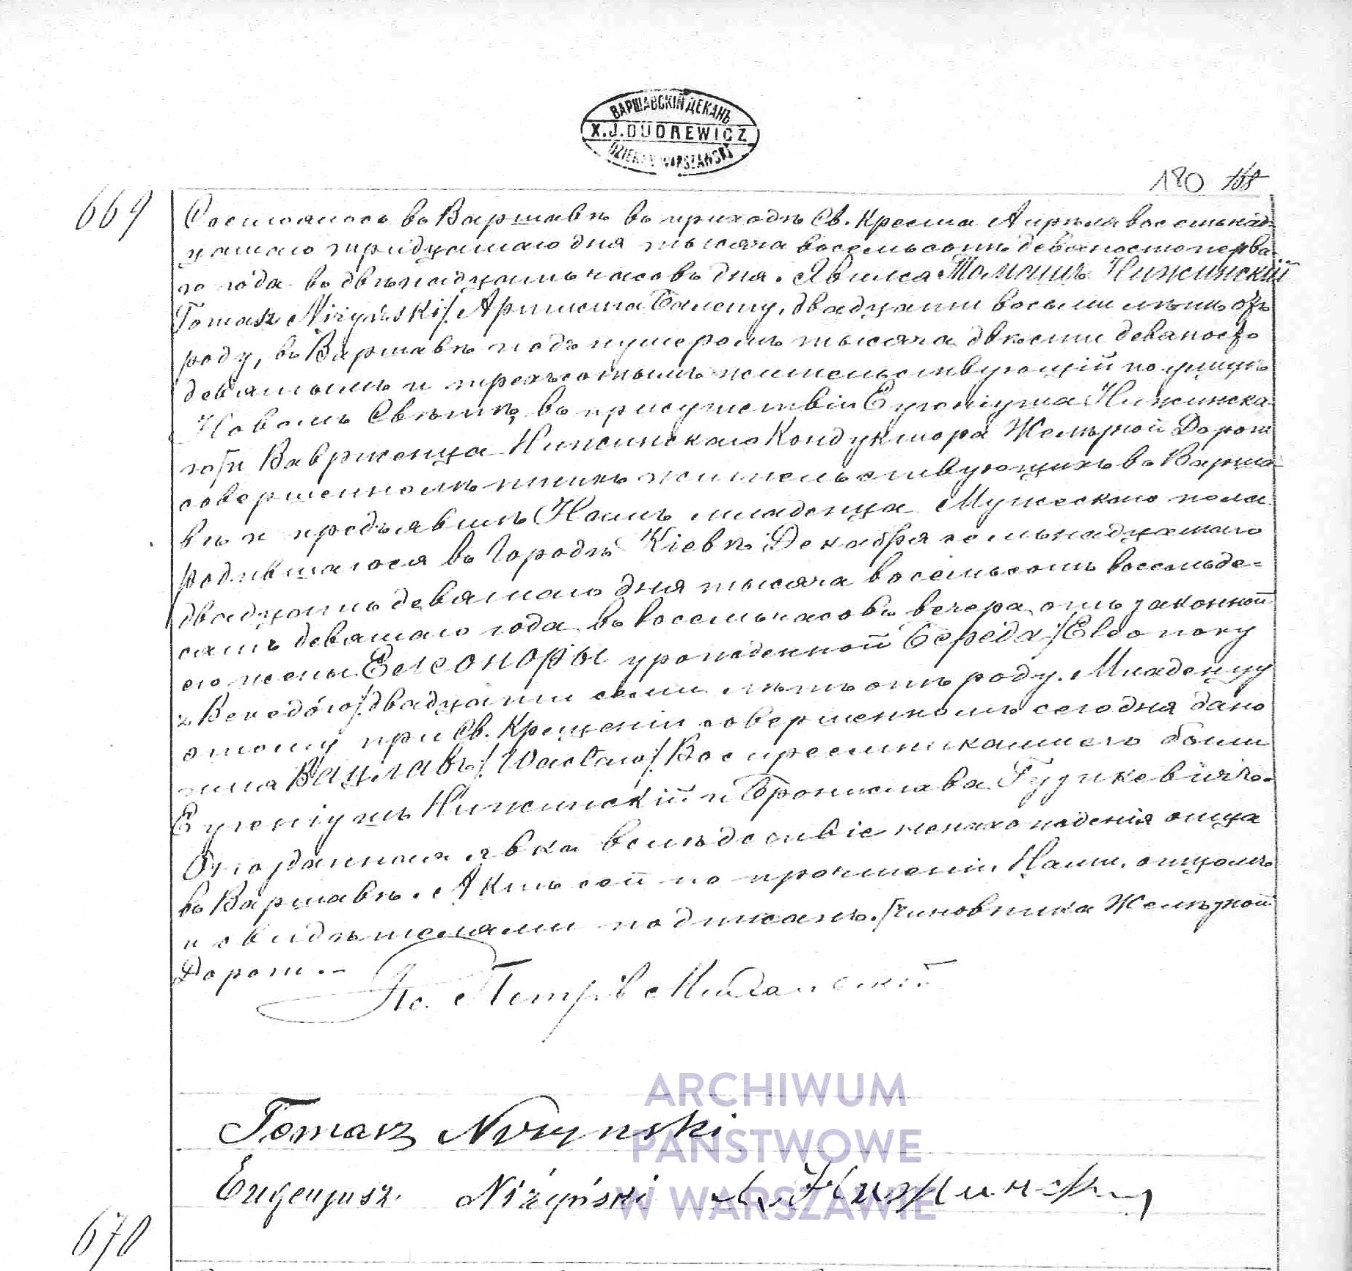 ВАРШАВСКІЙ ДЕКАНЪ
X.J.DUDREWICZ
DZIEKAN WARSZAŃSKI
180 168
669
Состоялось въ Варшавѣ въ приходѣ Св. Креста Апрѣля восемнад-
цатаго тридцатаго дня тысяча восемьсотъ девяносто перва-
го года въ двѣнадцать часовъ дня. Явился Томашъ Нижинскій
/Tomasz Niżyński/ Артистъ Балету, двадцати восьми лѣтъ отъ
роду, въ Варшавѣ подъ нумеромъ тысяча двѣсти девяносто
девятымъ и трехсотымъ жительствующій по улицѣ
Новомъ Свѣтѣ, въ присутствіи Еугеніуша Нижинска-
го и Ваврженца Нижинскаго Кондуктора Желѣзной Дороги
совершеннолѣтнихъ жительствующихъ въ Варша-
вѣ и предъявилъ Намъ младенца Мужескаго пола
родившагося въ Городѣ Кіевѣ Декабря семнадцатаго
двадцать девятаго дня тысяча восемьсотъ восемьде-
сятъ девятаго года въ восемь часовъ вечера отъ законной
его жены Елеоноры урожденной Береда /Eleonory
z Beredów/ двадцати семи лѣтъ отъ роду. Младенцу
этому при Св. Крещеніи совершенномъ сегодня дано
имя Вацлавъ /Wacław/ Воспреемниками его были
Еугеніушъ Нижинскій и Бронислава Гудкевичъ.
Опозданная явка вслѣдствіе ненахожденія отца
въ Варшавѣ. Актъ сей по прочтеніи Нами, отцомъ
и свидѣтелями подписанъ. /чиновника Желѣзной
Дороги.-
Кс. Петръ
Tomasz Niżynski
Eugeniusz Niżyński В. Нижинскій
670
ARCHIWUM
PAŃSTWOWE
W WARSZAWIE